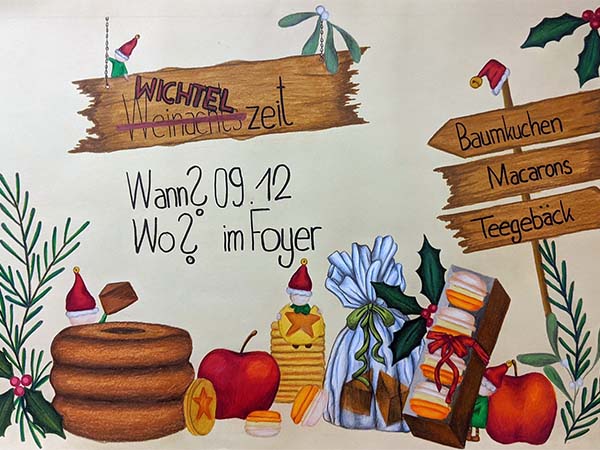 WICHTEL
Weinachtszeit
Wann? 09.12
Wo? im Foyer
Baumkuchen
Macarons
Teegebäck